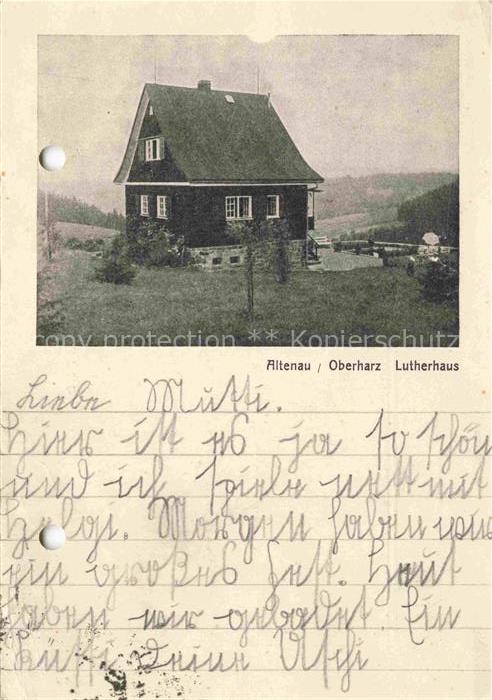 copy protection ** Kopierschutz
Altenau / Oberharz Lutherhaus
Liebe Mutti.
Hier ist es ja so schön
und ich spiele nett mit
Helgi. Morgen haben wir
ein großes Fest. Heut
haben wir gebadet. Ein
Kussi Deine Uschi